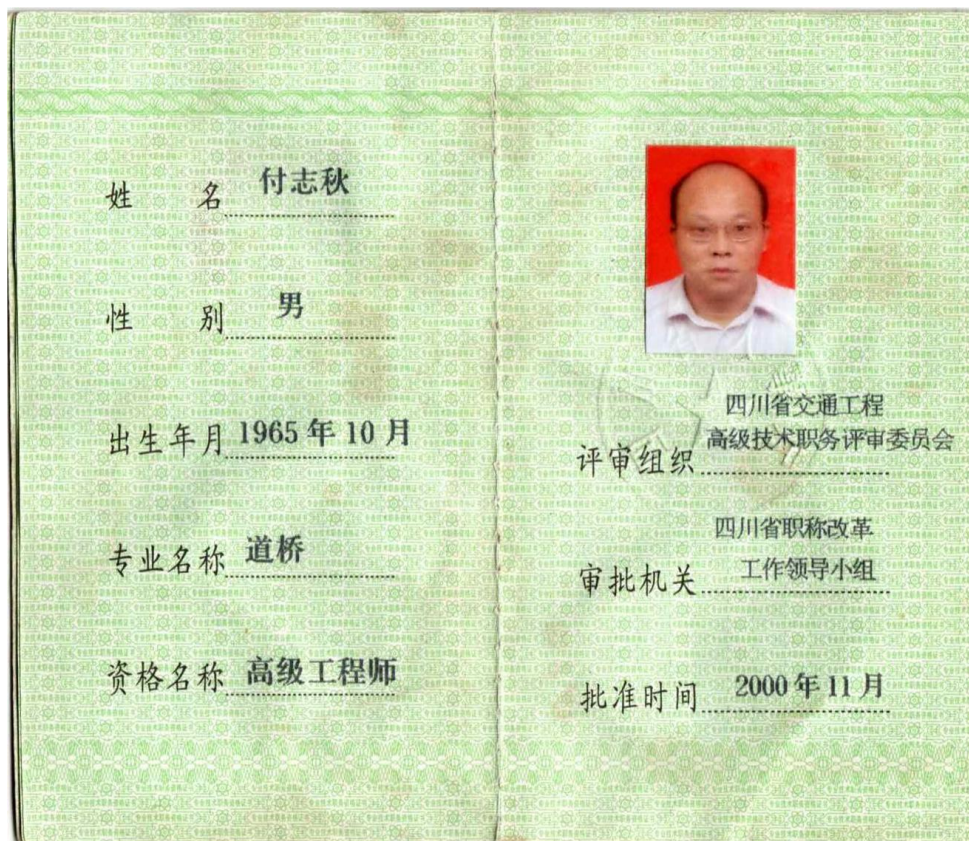 姓 名 付志秋
性 别 男
出生年月 1965年10月
专业名称 道桥
资格名称 高级工程师
四川省交通工程
评审组织 高级技术职务评审委员会
四川省职称改革
审批机关 工作领导小组
批准时间 2000年11月